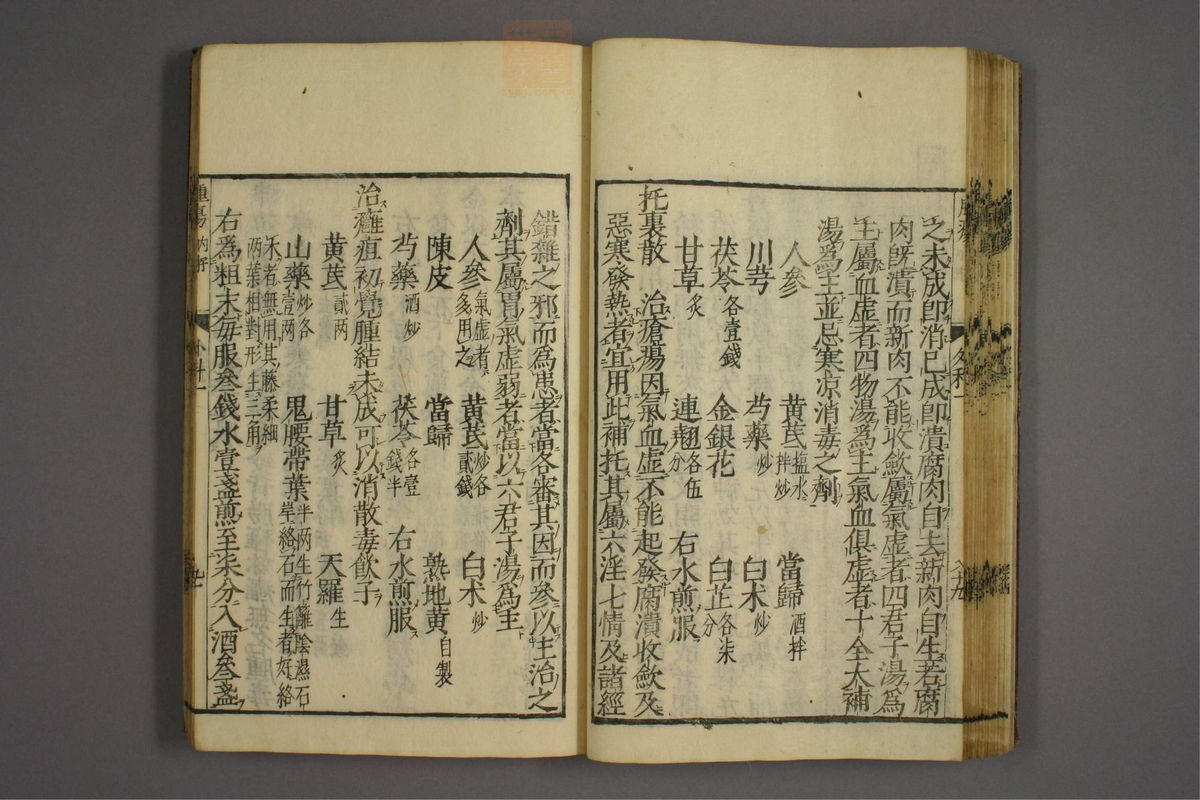 之未成即消已成即潰腐肉自去新肉自生若腐
肉既潰而新肉不能收斂屬氣虛者四君子湯爲
主屬血虛者四物湯爲主氣血俱虛者十全大補
湯爲主並忌寒凉消毒之劑
人參 黃芪塩水拌炒 當歸酒拌
川芎 芍藥炒 白术炒
茯苓各壹錢 金銀花 白芷各柒分
甘草炙 連翹各伍分 右水煎服
托裏散 治瘡瘍因氣血虛不能起發腐潰收斂及
惡寒發熱者宜用此補托其屬六淫七情及諸經
錯雜之邪而爲患者當各審其因而參以主治之
劑其屬胃氣虛弱者當以六君子湯爲主
人參氣虛者多用之 黃芪炒各貳錢 白术炒
陳皮 當歸 熟地黃自製
芍藥酒炒 茯苓各壹錢半 右水煎服
治癰疽初覺腫結未成可以消散毒飲子
黃芪貳两 甘草炙 天羅生
山藥炒各壹两 鬼腰帶葉半两生竹籬陰濕石岸絡石而生者好絡
木者無用其藤柔細两葉相對形生三角
右爲粗末每服叄錢水壹盞煎至柒分入酒叄盞